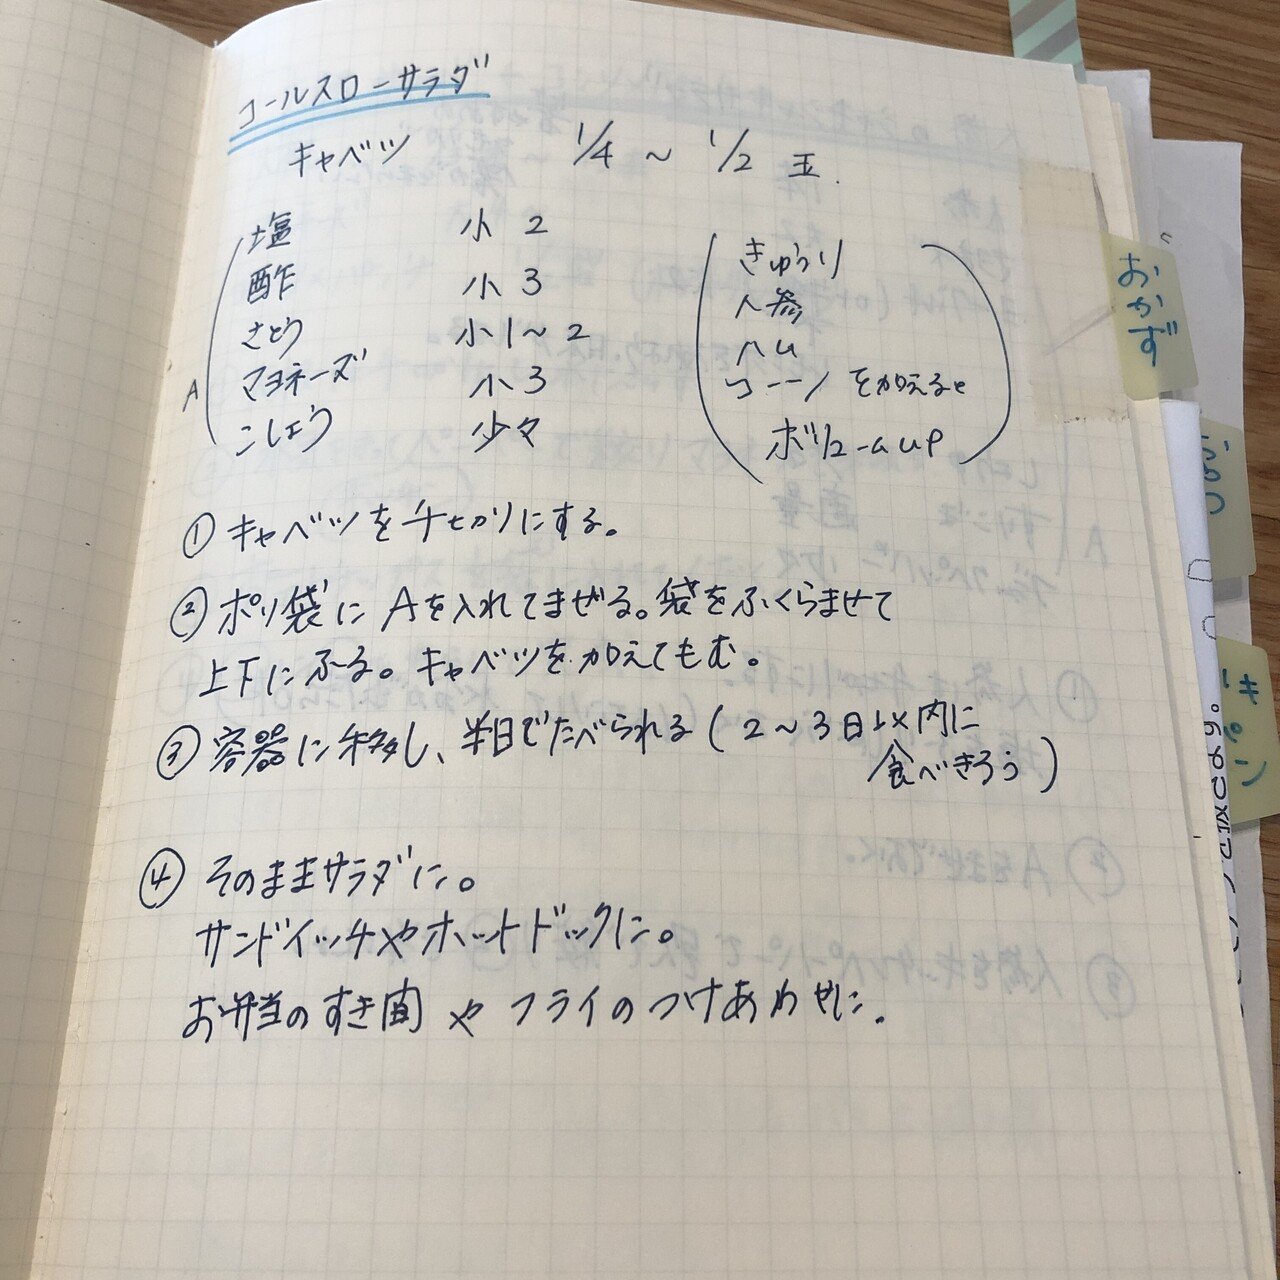 コールスローサラダ
キャベツ 1/4 ~ 1/2 玉.
塩 小 2
酢 小 3
さとう 小1~2
マヨネーズ 小3
こしょう 少々
A
きゅうり
人参
ハム
コーン を加えると
ボリュームup
① キャベツを千切りにする。
② ポリ袋に Aを入れてまぜる。袋をふくらませて
上下にふる。キャベツを加えてもむ。
③ 容器に移し、半日でたべられる(2~3日以内に
食べきろう)
④ そのままサラダに。
サンドイッチやホットドックに。
お弁当のすき間 や フライのつけあわせに.
おかず
おやつ
パン